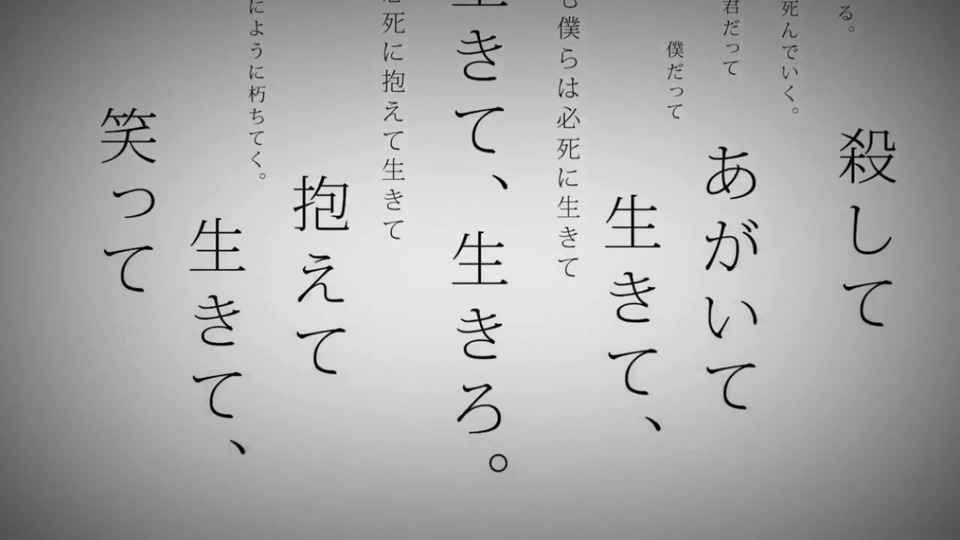 殺して
る。
死んでいく。
君だって
あがいて
僕だって
生きて、
も僕らは必死に生きて
生きて、生きろ。
必死に抱えて生きて
抱えて
にように朽ちてく。
生きて、
笑って